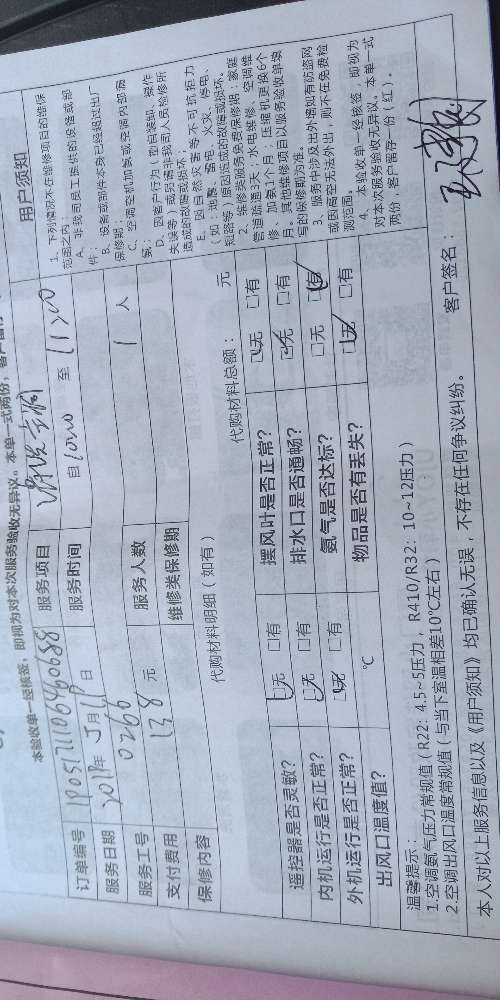 本验收单一经核签，即视为对本次服务验收无异议。本单一式两份，客户留存
订单编号 18051711106960688 服务项目
服务日期 2018年5月19日 服务时间 自1000至1200
服务工号 0269 服务人数 1 人
支付费用 138 元 维修类保修期
保修内容
代购材料明细（如有） 代购材料总额： 元
遥控器是否灵敏？ □无 □有 摆风叶是否正常？ □无 □有
内机运行是否正常？ □无 □有 排水口是否通畅？ □无 □有
外机运行是否正常？ □无 □有 氨气是否达标？ □无 □有
出风口温度值？ ℃ 物品是否有丢失？ □无 □有
温馨提示：
1.空调氨气压力常规值（R22：4.5~5压力，R410/R32：10~12压力）
2.空调出风口温度常规值（与当下室温相差10℃左右）
本人对以上服务信息以及《用户须知》均已确认无误，不存在任何争议纠纷。 客户签名：
用户须知
1、下列情况不在维修项目的维保
范围之内：
A、非我司员工提供的设备或部
件；
B、设备或部件本身已经超过出厂
保修期；
C、空调空机加氨或空调内部漏
氨；
D、因客户行为（和自装卸、操作
失误等）或另请非我司人员检修所
造成的故障或损坏。
E、因自然灾害等不可抗拒力
（如：地震、雷电、火灾、停电、
短路等）原因造成的故障或损坏。
2、维修类服务免费保修期：家庭
管道疏通3天；水电维修、空调维
修、加氨1个月；压缩机更换6个
月。其他维修项目以服务验收单填
写的保修期为准。
3、服务中涉及出外墙如有防盗网
或因高空无法外出，则不在免费检
测范围。
4、本验收单一经核签，即视为
对本次服务验收无异议，本单一式
两份，客户留存一份（红）。